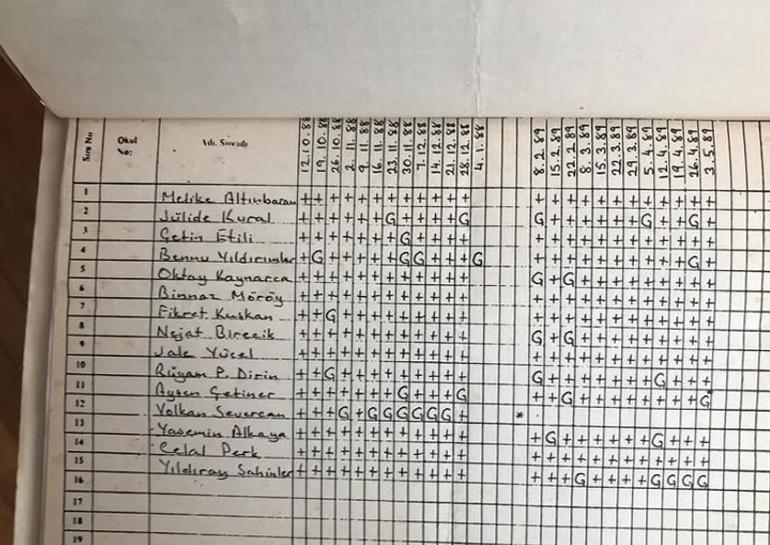 Sıra No Okul No: Adı, Soyadı 12.10.88 19.10.88 26.10.88 2.11.88 9.11.88 16.11.88 23.11.88 30.11.88 7.12.88 14.12.88 21.12.88 28.12.88 4.1.88 8.2.89 15.2.89 22.2.89 8.3.89 15.3.89 22.3.89 29.3.89 5.4.89 12.4.89 19.4.89 26.4.89 3.5.89
1 Melike Altınbaran + + + + + + + + + + + + + + + + + + + + + + + +
2 Jülide Kural + + + + + + G + + + + G G + + + + + + G + + G +
3 Çetin Etili + + + + + + + G + + + + + + + + + + + + + + + +
4 Bennu Yıldırımlar + G + + + + + G G + + + G + + + + + + + + + + G +
5 Oktay Kaynarca + + + + + + + + + + + + G + G + + + + + + + + +
6 Binnaz Möröy + + + + + + + + + + + + + + + + + + + + + + + +
7 Fikret Kuşkan + + G + + + + + + + + + + + + + + + + + + + + +
8 Nejat Birecik + + + + + + + + + + + + G + G + + + + + + + + +
9 Jale Yücel + + + + + + + + + + + + + + + + + + + + + + + +
10 Rüyam P. Dirin + + G + + + + + + + + + G + + + + + + + G + + +
11 Ayşen Çetiner + + + + + + + G + + + G + + G + + + + + + + + G
12 Volkan Severcan + + + G + G G G G G G + *
13 Yasemin Alkaya + + + + + + + + + + + + + G + + + + + + G + + +
14 Celal Perk + + + + + + + + + + + + + + + + + + + + + + + +
15 Yıldıray Şahinler + + + + + + + + + + + + + + + G + + + + G G G G
16
17
18
19